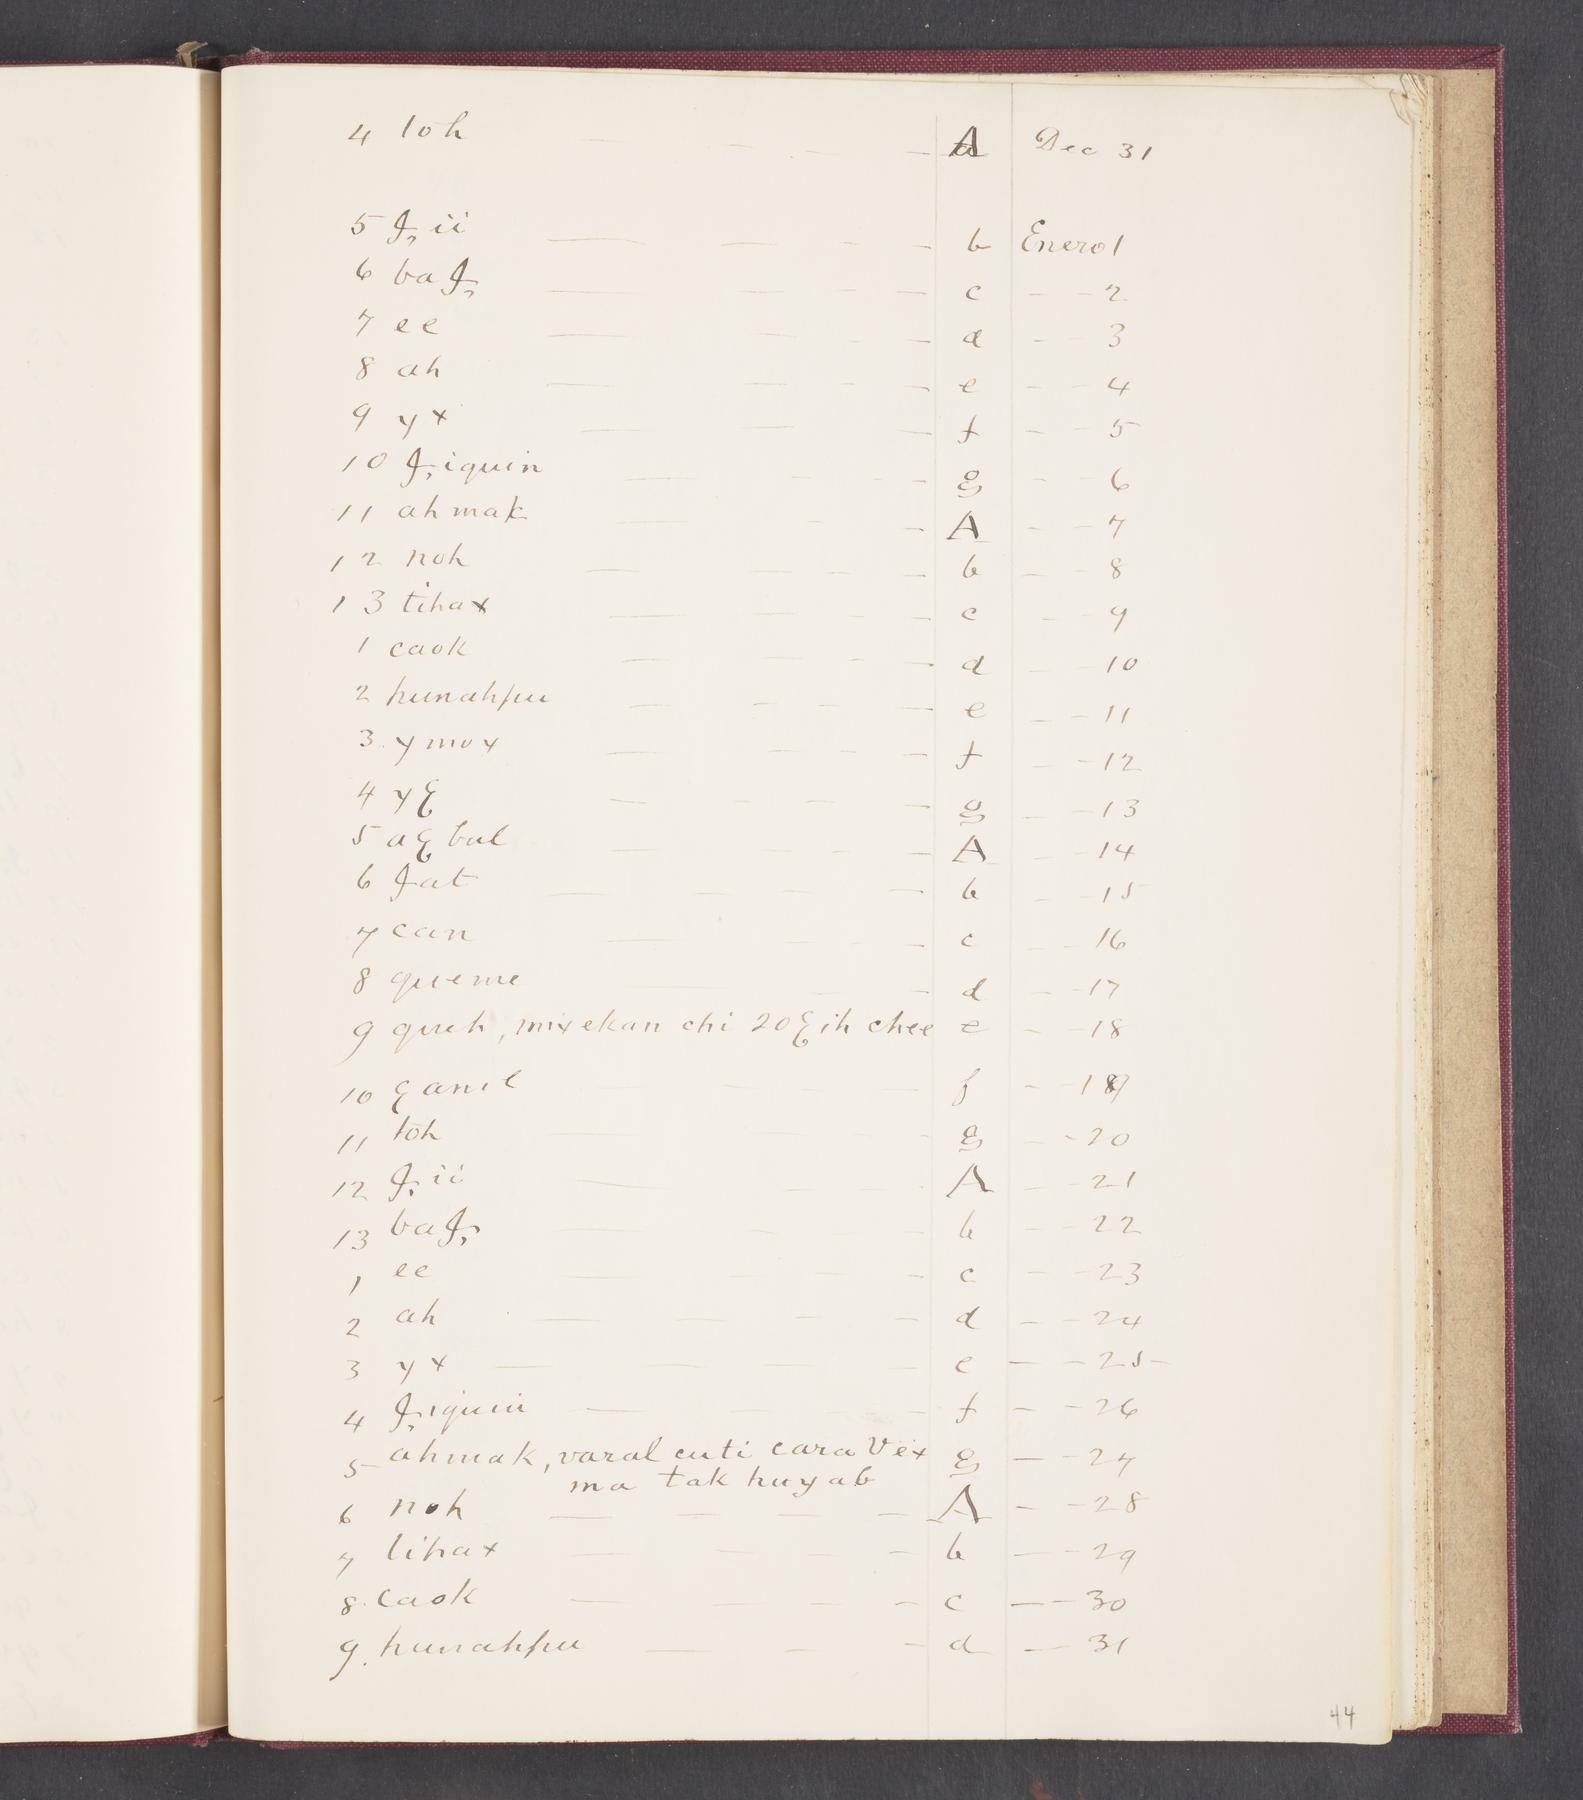 4 toh — — — — A Dec 31
5 ꜯ,ii — — — — b Enero 1
6 baꜯ, — — — — c — — 2
7 ee — — — d — — 3
8 ah — — — — e — — 4
9 yx — — — f — — 5
10 ꜯ,iquin — — — — g — — 6
11 ahmak — — — A — — 7
12 noh — — — — b — — 8
13 tihax — — — — c — — 9
1 caok — — — — d — — 10
2 hunahpu — — — — e — — 11
3 ymox — — — — f — — 12
4 yꜫ — — — — g — — 13
5 aꜫbal — — — — A — — 14
6 ꜯat — — — — b — — 15
7 can — — — — c — — 16
8 queme — — — d — — 17
9 queh, mixekan chi 20 ꜫih chee e — — 18
10 ꜫanil — — — f — — 19
11 toh — — — — g — — 20
12 ꜯ,ii — — — A — — 21
13 baꜯ, — — — b — — 22
1 ee — — — — c — — 23
2 ah — — — — d — — 24
3 yx — — — — e — — 25
4 ꜯ,iquin — — — — f — — 26
5 ahmak, varal cuti cara Vex g — — 27
ma tak huyab
6 noh — — — — A — — 28
7 tihax — — — — b — — 29
8 caok — — — — c — — 30
9. hunahpu — — — d — — 31
44